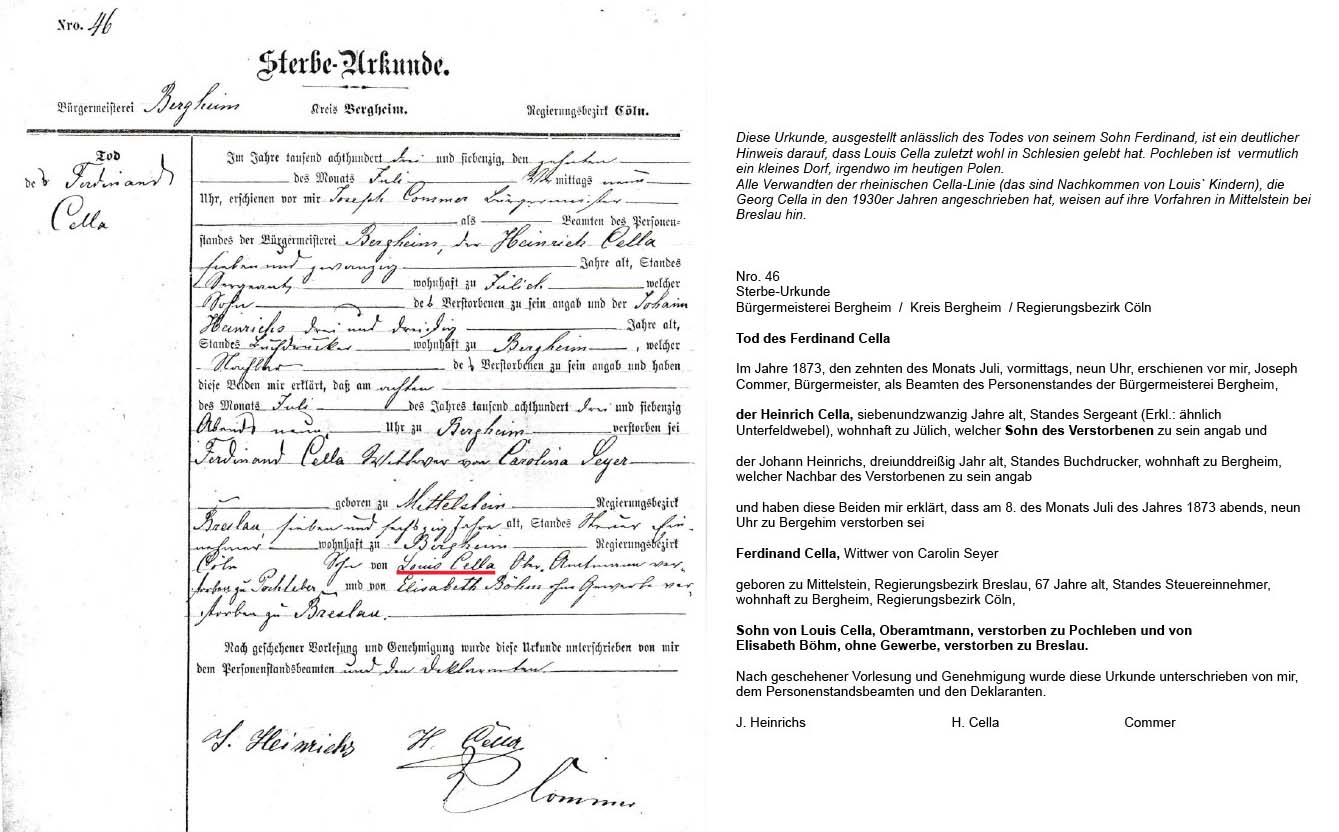 Nro. 46
Sterbe-Urkunde.
Bürgermeisterei Bergheim Kreis Bergheim. Regierungsbezirk Cöln.
Tod
des Ferdinand
Cella
Im Jahre tausend achthundert drei und siebenzig, den zehnten
des Monats Juli Vormittags neun
Uhr, erschienen vor mir Joseph Commer Bürgermeister
als Beamten des Personen-
standes der Bürgermeisterei Bergheim, der Heinrich Cella
sieben und zwanzig Jahre alt, Standes
Sergeant wohnhaft zu Jülich welcher
Sohn des Verstorbenen zu sein angab und der Johann
Heinrichs drei und dreißig Jahre alt,
Standes Buchdrucker wohnhaft zu Bergheim, welcher
Nachbar des Verstorbenen zu sein angab und haben
diese Beiden mir erklärt, daß am achten
des Monats Juli des Jahres tausend achthundert drei und siebenzig
Abends neun Uhr zu Bergheim verstorben sei
Ferdinand Cella Wittwer von Carolina Seyer
geboren zu Mittelstein Regierungsbezirk
Breslau, sieben und sechszig Jahre alt, Standes Steuer ein-
nehmer wohnhaft zu Bergheim Regierungsbezirk
Cöln Sohn von Louis Cella Ober Amtmann ver-
storben zu Pochleben und von Elisabeth Böhm ohne Gewerbe ver-
storben zu Breslau.
Nach geschehener Vorlesung und Genehmigung wurde diese Urkunde unterschrieben von mir
dem Personenstandsbeamten und den Deklaranten.
J. Heinrichs H. Cella
Commer
Diese Urkunde, ausgestellt anlässlich des Todes von seinem Sohn Ferdinand, ist ein deutlicher
Hinweis darauf, dass Louis Cella zuletzt wohl in Schlesien gelebt hat. Pochleben ist vermutlich
ein kleines Dorf, irgendwo im heutigen Polen.
Alle Verwandten der rheinischen Cella-Linie (das sind Nachkommen von Louis` Kindern), die
Georg Cella in den 1930er Jahren angeschrieben hat, weisen auf ihre Vorfahren in Mittelstein bei
Breslau hin.
Nro. 46
Sterbe-Urkunde
Bürgermeisterei Bergheim / Kreis Bergheim / Regierungsbezirk Cöln
Tod des Ferdinand Cella
Im Jahre 1873, den zehnten des Monats Juli, vormittags, neun Uhr, erschienen vor mir, Joseph
Commer, Bürgermeister, als Beamten des Personenstandes der Bürgermeisterei Bergheim,
der Heinrich Cella, siebenundzwanzig Jahre alt, Standes Sergeant (Erkl.: ähnlich
Unterfeldwebel), wohnhaft zu Jülich, welcher Sohn des Verstorbenen zu sein angab und
der Johann Heinrichs, dreiunddreißig Jahr alt, Standes Buchdrucker, wohnhaft zu Bergheim,
welcher Nachbar des Verstorbenen zu sein angab
und haben diese Beiden mir erklärt, dass am 8. des Monats Juli des Jahres 1873 abends, neun
Uhr zu Bergehim verstorben sei
Ferdinand Cella, Wittwer von Carolin Seyer
geboren zu Mittelstein, Regierungsbezirk Breslau, 67 Jahre alt, Standes Steuereinnehmer,
wohnhaft zu Bergheim, Regierungsbezirk Cöln,
Sohn von Louis Cella, Oberamtmann, verstorben zu Pochleben und von
Elisabeth Böhm, ohne Gewerbe, verstorben zu Breslau.
Nach geschehener Vorlesung und Genehmigung wurde diese Urkunde unterschrieben von mir,
dem Personenstandsbeamten und den Deklaranten.
J. Heinrichs H. Cella Commer